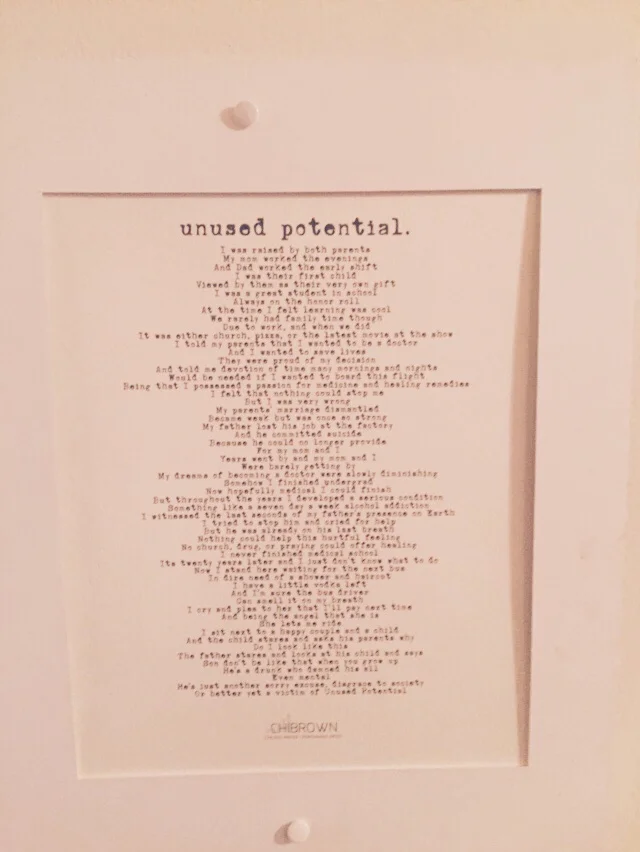 unused potential.
I was raised by both parents
My mom worked the evenings
And Dad worked the early shift
I was their first child
Viewed by them as their very own gift
I was a great student in school
Always on the honor roll
At the time I felt learning was cool
We rarely had family time though
Due to work, and when we did
It was either church, pizza, or the latest movie at the show
I told my parents that I wanted to be a doctor
And I wanted to save lives
They were proud of my decision
And told me devotion of time many mornings and nights
Would be needed if I wanted to board this flight
Being that I possessed a passion for medicine and healing remedies
I felt that nothing could stop me
But I was very wrong
My parents' marriage dismantled
Became weak but was once so strong
My father lost his job at the factory
And he committed suicide
Because he could no longer provide
For my mom and I
Years went by and my mom and I
Were barely getting by
My dreams of becoming a doctor were slowly diminishing
Somehow I finished undergrad
Now hopefully medical I could finish
But throughout the years I developed a serious condition
Something like a seven day a week alcohol addiction
I witnessed the last seconds of my father's presence on Earth
I tried to stop him and cried for help
But he was already on his last breath
Nothing could help this hurtful feeling
No church, drug, or praying could offer healing
I never finished medical school
Its twenty years later and I just don't know what to do
Now I stand here waiting for the next bus
In dire need of a shower and haircut
I have a little vodka left
And I'm sure the bus driver
Can smell it on my breath
I cry and plea to her that I'll pay next time
And being the angel that she is
She lets me ride
I sit next to a happy couple and a child
And the child stares and asks his parents why
Do I look like this
The father stares and looks at his child and says
Son don't be like that when you grow up
He's a drunk who damned his all
Even mental
He's just another sorry excuse, disgrace to society
Or better yet a victim of Unused Potential
CHIBROWN